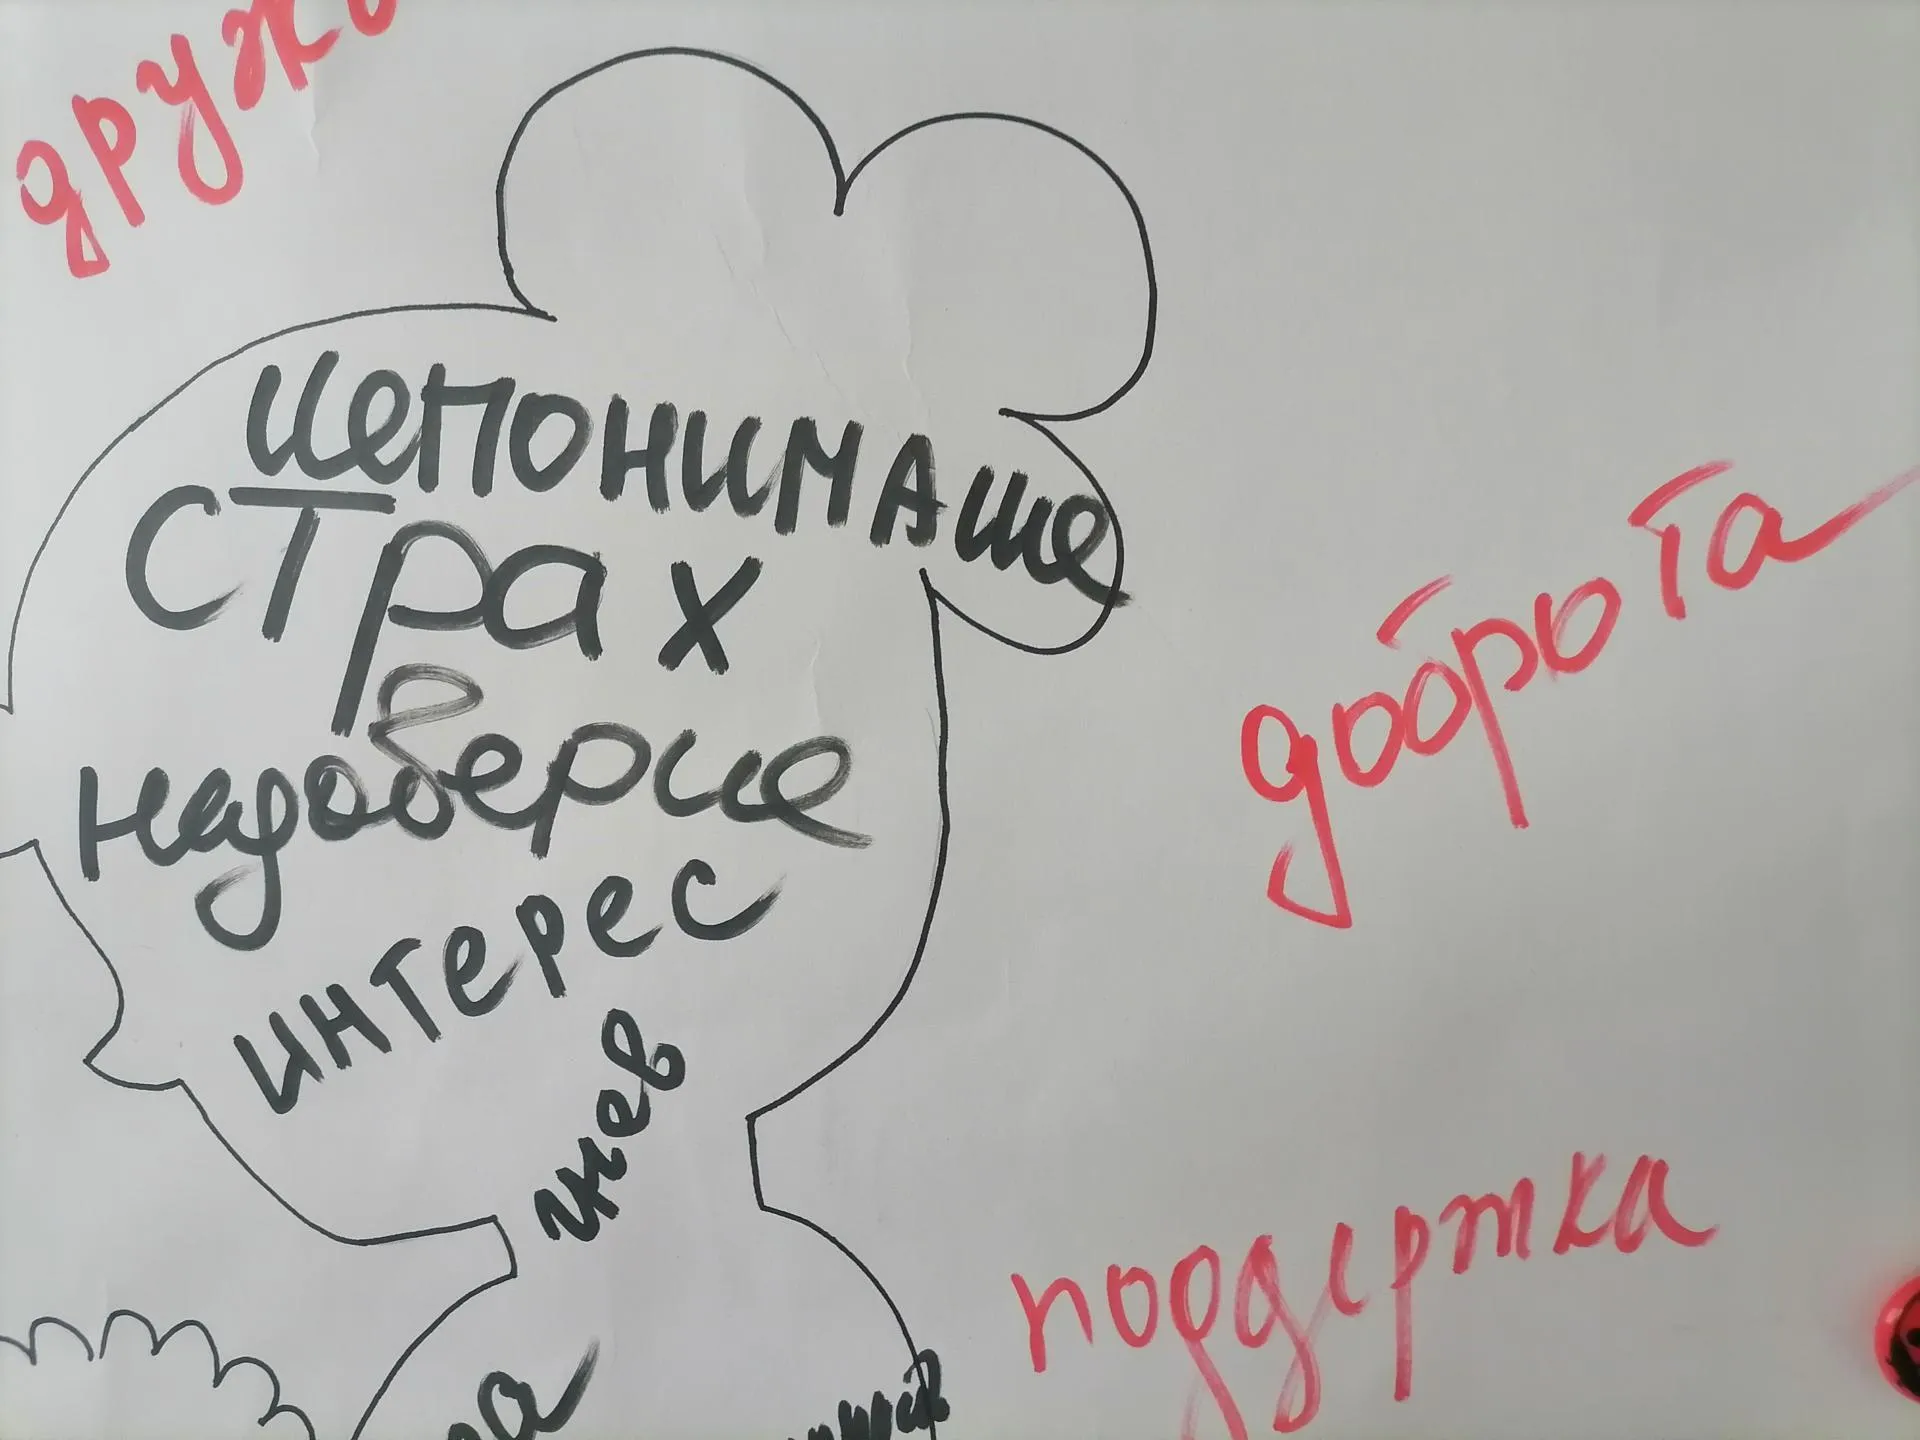 друж
непонимание
страх
недоверие
интерес
гнев
доброта
поддержка